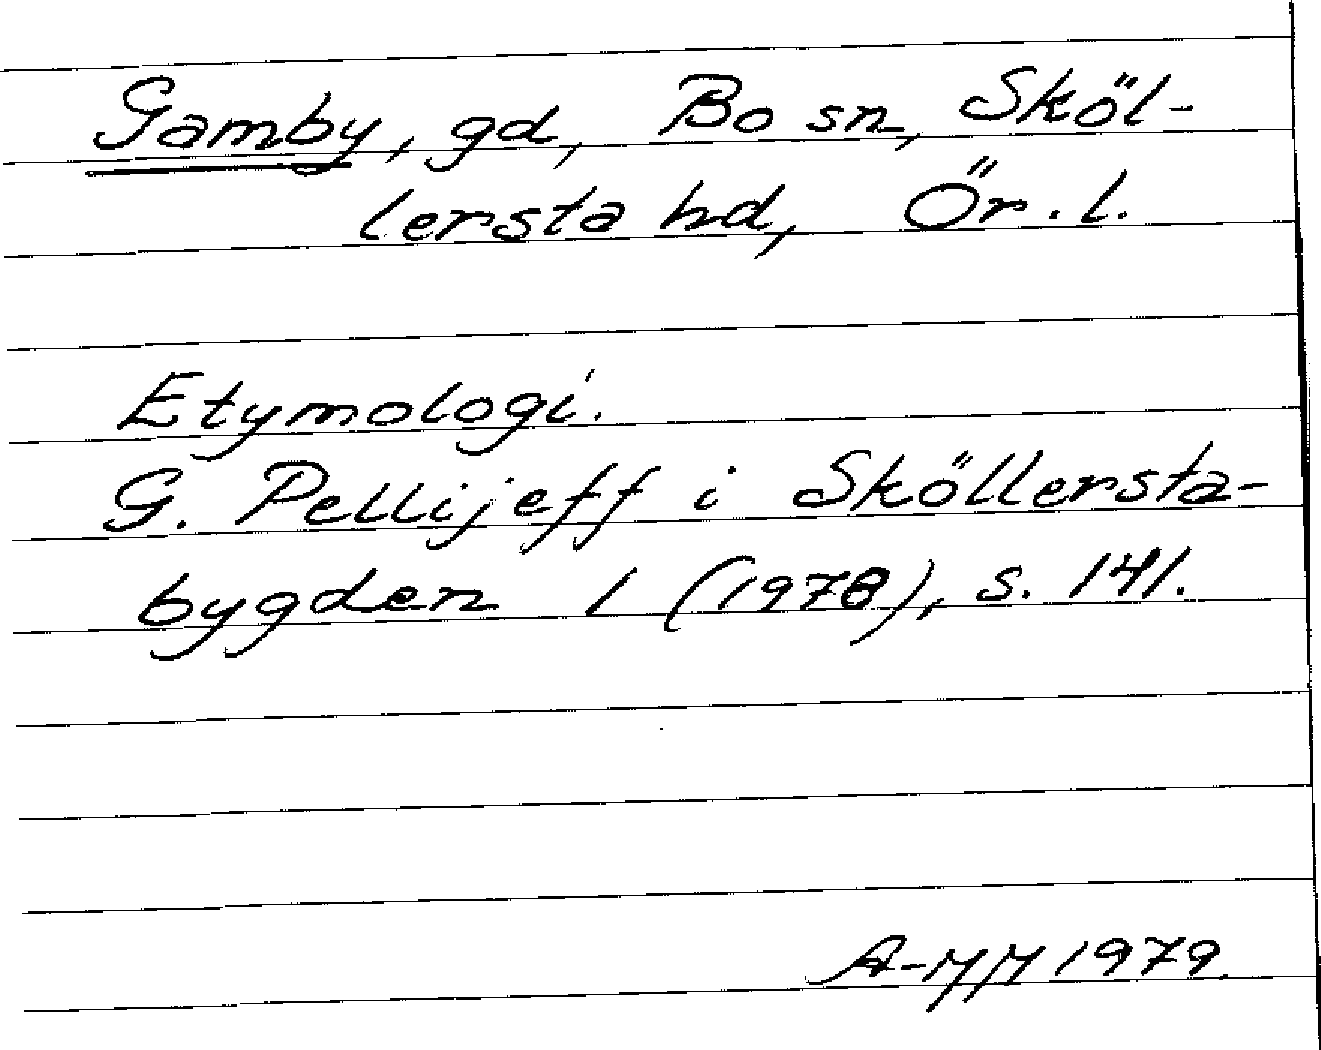 Gamby, gd, Bo sn, Sköl-
lersta hd, Ör. l.
Etymologi.
G. Pellijeff i Sköllersta-
bygden 1 (1978), s. 141.
1979.